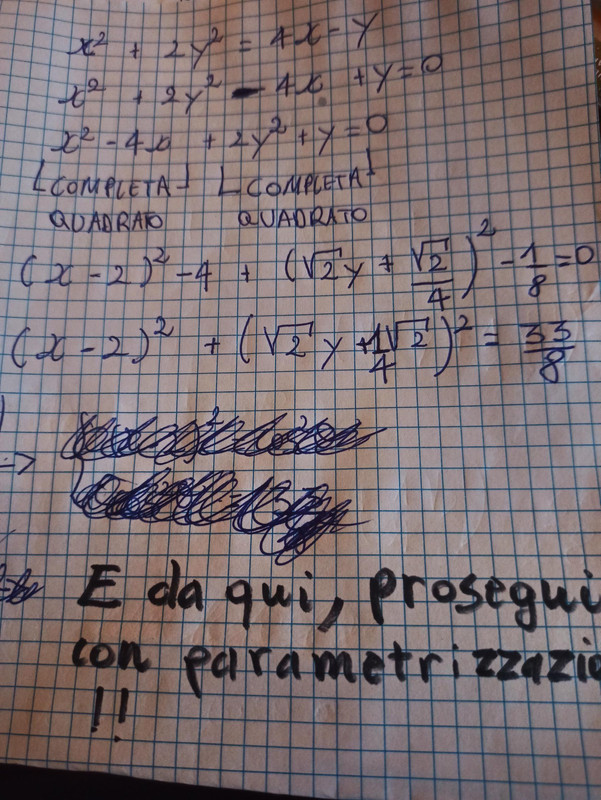 x² + 2y² = 4x - y
x² + 2y² - 4x + y = 0
x² - 4x + 2y² + y = 0
⌊COMPLETA⌋ ⌊COMPLETA⌋
QUADRATO QUADRATO
(x - 2)² - 4 + (√2 y + √2/4)² - 1/8 = 0
(x - 2)² + (√2 y + 1√2/4)² = 33/8
->
E da qui, prosegui
con parametrizzazio
!!